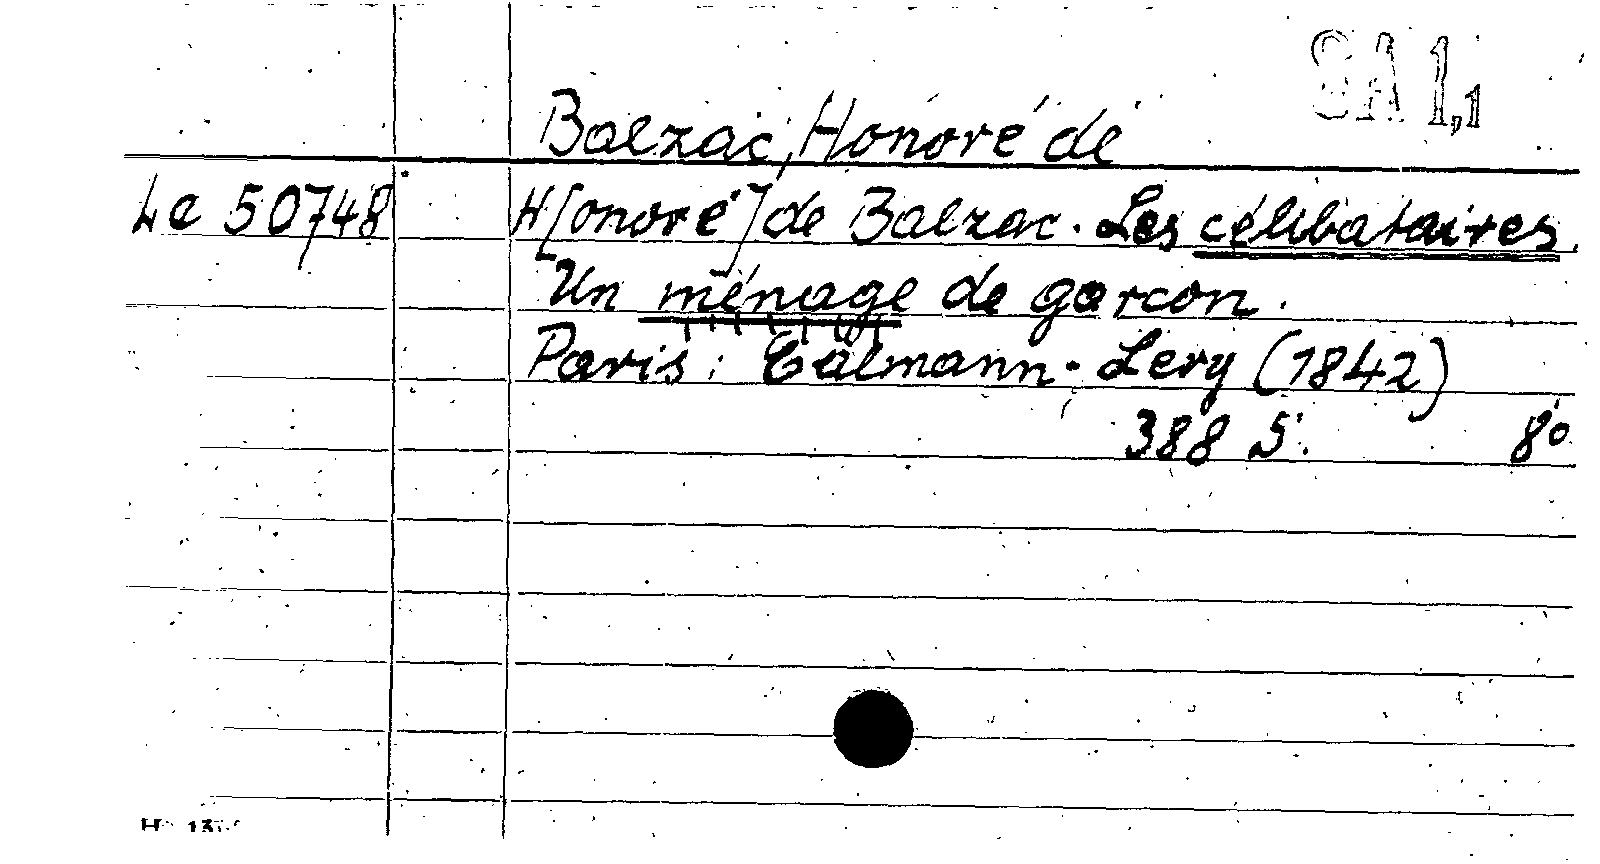 SA 1,1
Balzac, Honoré de
Le 50748 H[onoré] de Balzac. Les célibataires.
Un ménage de garcon.
Paris: Calmann-Levy (1842)
388 S. 8°